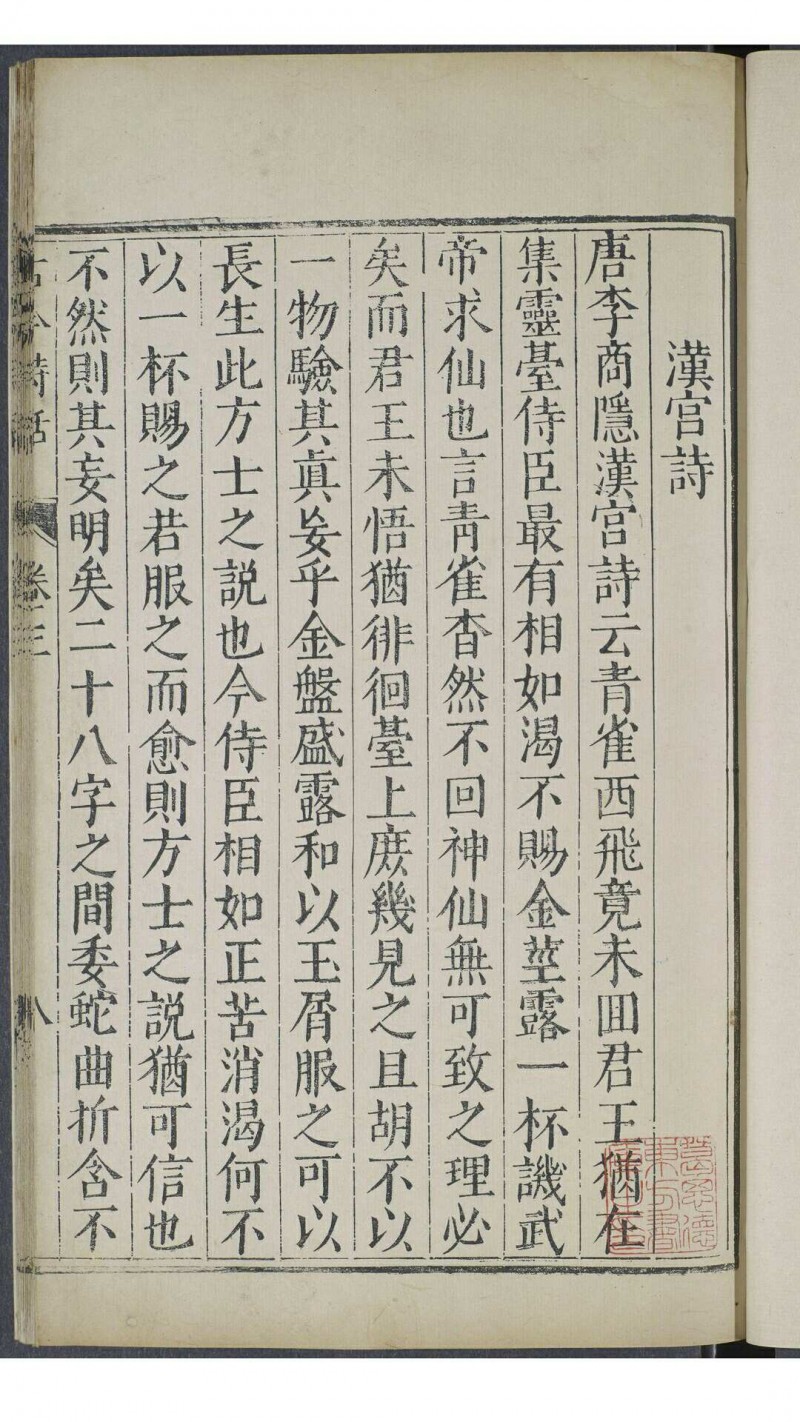 漢宮詩
唐李商隱漢宮詩云青雀西飛竟未回君王猶在
集靈臺侍臣最有相如渴不賜金莖露一杯譏武
帝求仙也言青雀杳然不回神仙無可致之理必
矣而君王未悟猶徘徊臺上庶幾見之且胡不以
一物驗其眞妄乎金盤盛露和以玉屑服之可以
長生此方士之説也今侍臣相如正苦消渴何不
以一杯賜之若服之而愈則方士之説猶可信也
不然則其妄明矣二十八字之間委蛇曲折含不
古今詩話
卷三
八
葛思德
東方書